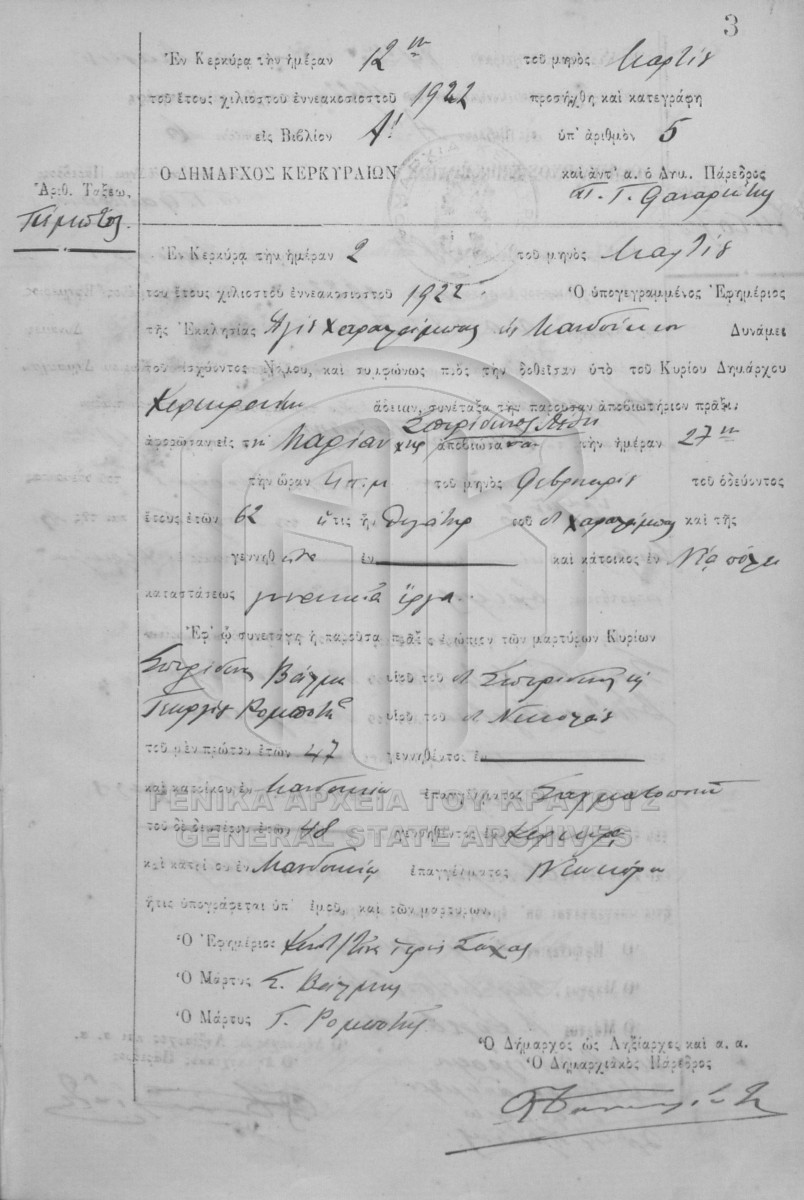 3
Ἐν Κερκύρᾳ τὴν ἡμέραν 12ην τοῦ μηνὸς Μαρτίου
τοῦ ἔτους χιλιοστοῦ ἐννεακοσιοστοῦ 1922 προσήχθη καὶ κατεγράφη
εἰς Βιβλίον Α! ὑπ' ἀριθμὸν 5
Ο ΔΗΜΑΡΧΟΣ ΚΕΡΚΥΡΑΙΩΝ καὶ ἀντ' α. ὁ Δημ. Πάρεδρος
Ἀριθ. Τάξεως
Πέμπτος.
Ἐν Κερκύρᾳ τὴν ἡμέραν 2 τοῦ μηνὸς Μαρτίου
του ἔτους χιλιοστοῦ ἐννεακοσιοστοῦ 1922 Ὁ ὑπογεγραμμένος Ἐφημέριος
τῆς Ἐκκλησίας Ἁγίου Χαραλάμπους Μανδούκιον Δυνάμει
τοῦ ἰσχύοντος Νόμου, καὶ συμφώνως πρὸς τὴν δοθεῖσαν ὑπὸ τοῦ Κυρίου Δημάρχου
Κερκυραίων ἄδειαν, συνέταξα τὴν παροῦσαν ἀποβιωτήριον πρᾶξιν
ἀφορῶσαν εἰς τὴν Μαρίαν χηρ Σπυρίδωνος ἀποβιώσασαν τὴν ἡμέραν 27ην
τὴν ὥραν τοῦ μηνὸς Φεβρουαρίου τοῦ ὁδεύοντος
ἔτους ἐτῶν 62 ἥτις ἦν θυγάτηρ τοῦ Χαραλάμπους καὶ τῆς
γεννηθ ἐν καὶ κάτοικος ἐν Νέᾳ πόλει
καταστάσεως γυναικεῖα ἔργα
Ἐφ' ᾧ συνετάγη ἡ παροῦσα πρᾶξις ἐνώπιον τῶν μαρτύρων Κυρίων
Σπυρίδων υἱοῦ τοῦ Σπυρίδωνος καὶ
Γεωργίου Ρομποτῆ υἱοῦ τοῦ Νικολάου
τοῦ μὲν πρώτου ἐτῶν 47 γεννηθέντος ἐν
καὶ κατοίκου ἐν Μανδουκίῳ ἐπαγγέλματος Σαγματοποιοῦ
τοῦ δὲ δευτέρου ἐτῶν 48 γεννηθέντος ἐν Κέρκυρᾳ
καὶ κατοίκου ἐν Μανδουκίῳ ἐπαγγέλματος Νεωκόρου
ἥτις ὑπογράφεται ὑπ' ἐμοῦ, καὶ τῶν μαρτύρων.
Ὁ Ἐφημέριος
Ὁ Μάρτυς Σ.
Ὁ Μάρτυς Γ. Ρομποτής
Ὁ Δήμαρχος ὡς Ληξίαρχος καὶ α. α.
Ὁ Δημαρχιακὸς Πάρεδρος
ΓΕΝΙΚΑ ΑΡΧΕΙΑ ΤΟΥ ΚΡΑΤΟΥΣ
GENERAL STATE ARCHIVES